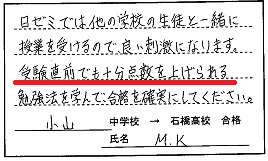 日ゼミでは他の学校の生徒と一緒に
授業を受けるので良い刺激になります。
受験直前でも十分点数を上げられる
勉強法を学んで合格を確実にしてください。
小山 中学校 → 石橋高校 合格
氏名 M.K